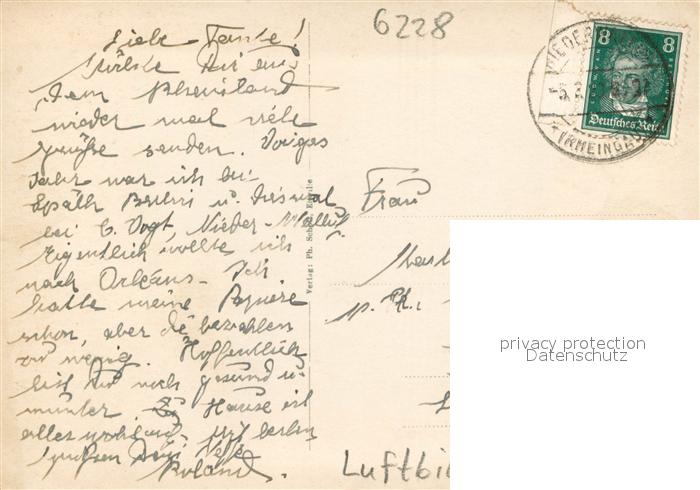 6228
Liebe Tante!
Möchte Dir aus
dem Rheinland
wieder mal viele
Grüße senden. Voriges
Jahr war ich bei
Späth Berlin u. diesmal
bei C. Vogt, Nieder-Walluf.
Eigentlich wollte ich
nach Orléans. Ich
hatte meine Papiere
schon, aber die bezahlen
zu wenig. Hoffentlich
bist Du noch gesund u.
munter. Zu Hause ist
alles wohlauf. Mit besten
Grüßen Dein Neffe
Roland.
Verlag: Ph.
8 8
Deutsches Reich
NIEDER
(RHEINGAU)
Frau
privacy protection
Datenschutz
Luftbi